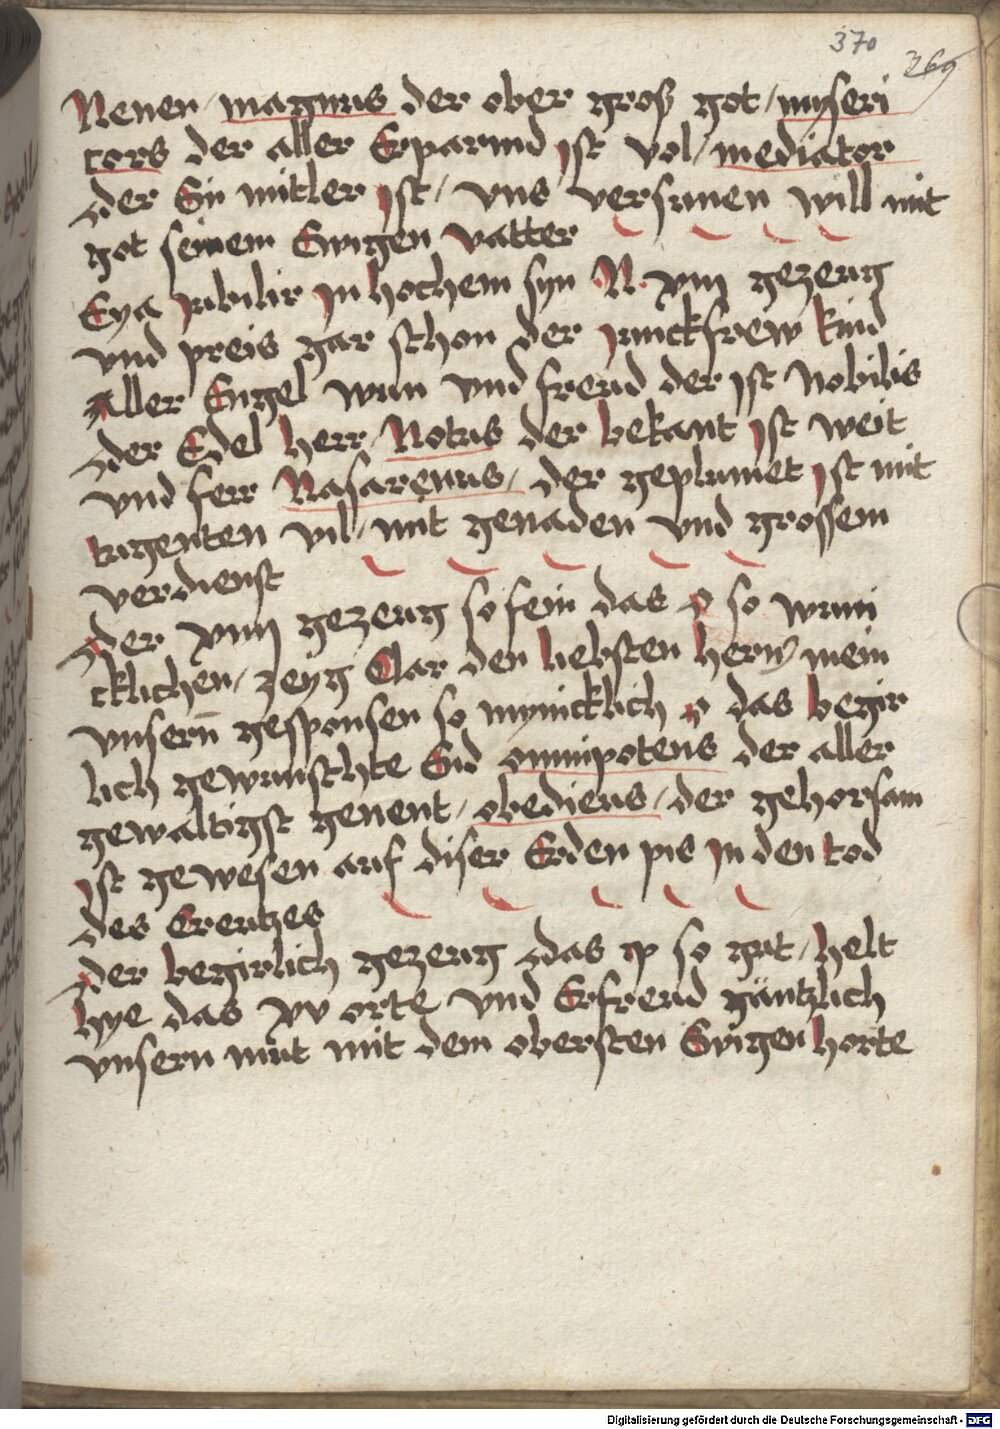 370
269
Nenen / magnus der ober groß got / myseri
cors der aller Erparmd jst vol / mediator
der Ein mitler jst / vns versunen will mit
got seinem Ewigen vatter
Eya Jubilir jn hochem syn N. xiij gezeug
vnd preis gar schon der junckfrew kind
Aller Engel wun vnd freud der jst Nobilis
der Edel herr / Notus der bekant jst weit
vnd ferr Nasarenus / der geplumet jst mit
tugenten vil / mit genaden vnd grossem
verdienst
der xiiij gezeug so fein das o so wuni
cklichen / zeyg Clar den liebsten hern mein
vnsern̄ gesponsen so mynicklich o das begir
lich gewunschte End omnipotens der aller
gewaltigst genent / obediens / der gehorsam
jst gewesen auf diser Erden pis jn den tod
des Creutzes
der begirlich gezeug das p so gut / helt
hye das xv orte vnd Erfreud gäntzlich
vnsern mut mit dem obersten Ewigen horte
Digitalisierung gefördert durch die Deutsche Forschungsgemeinschaft - DFG